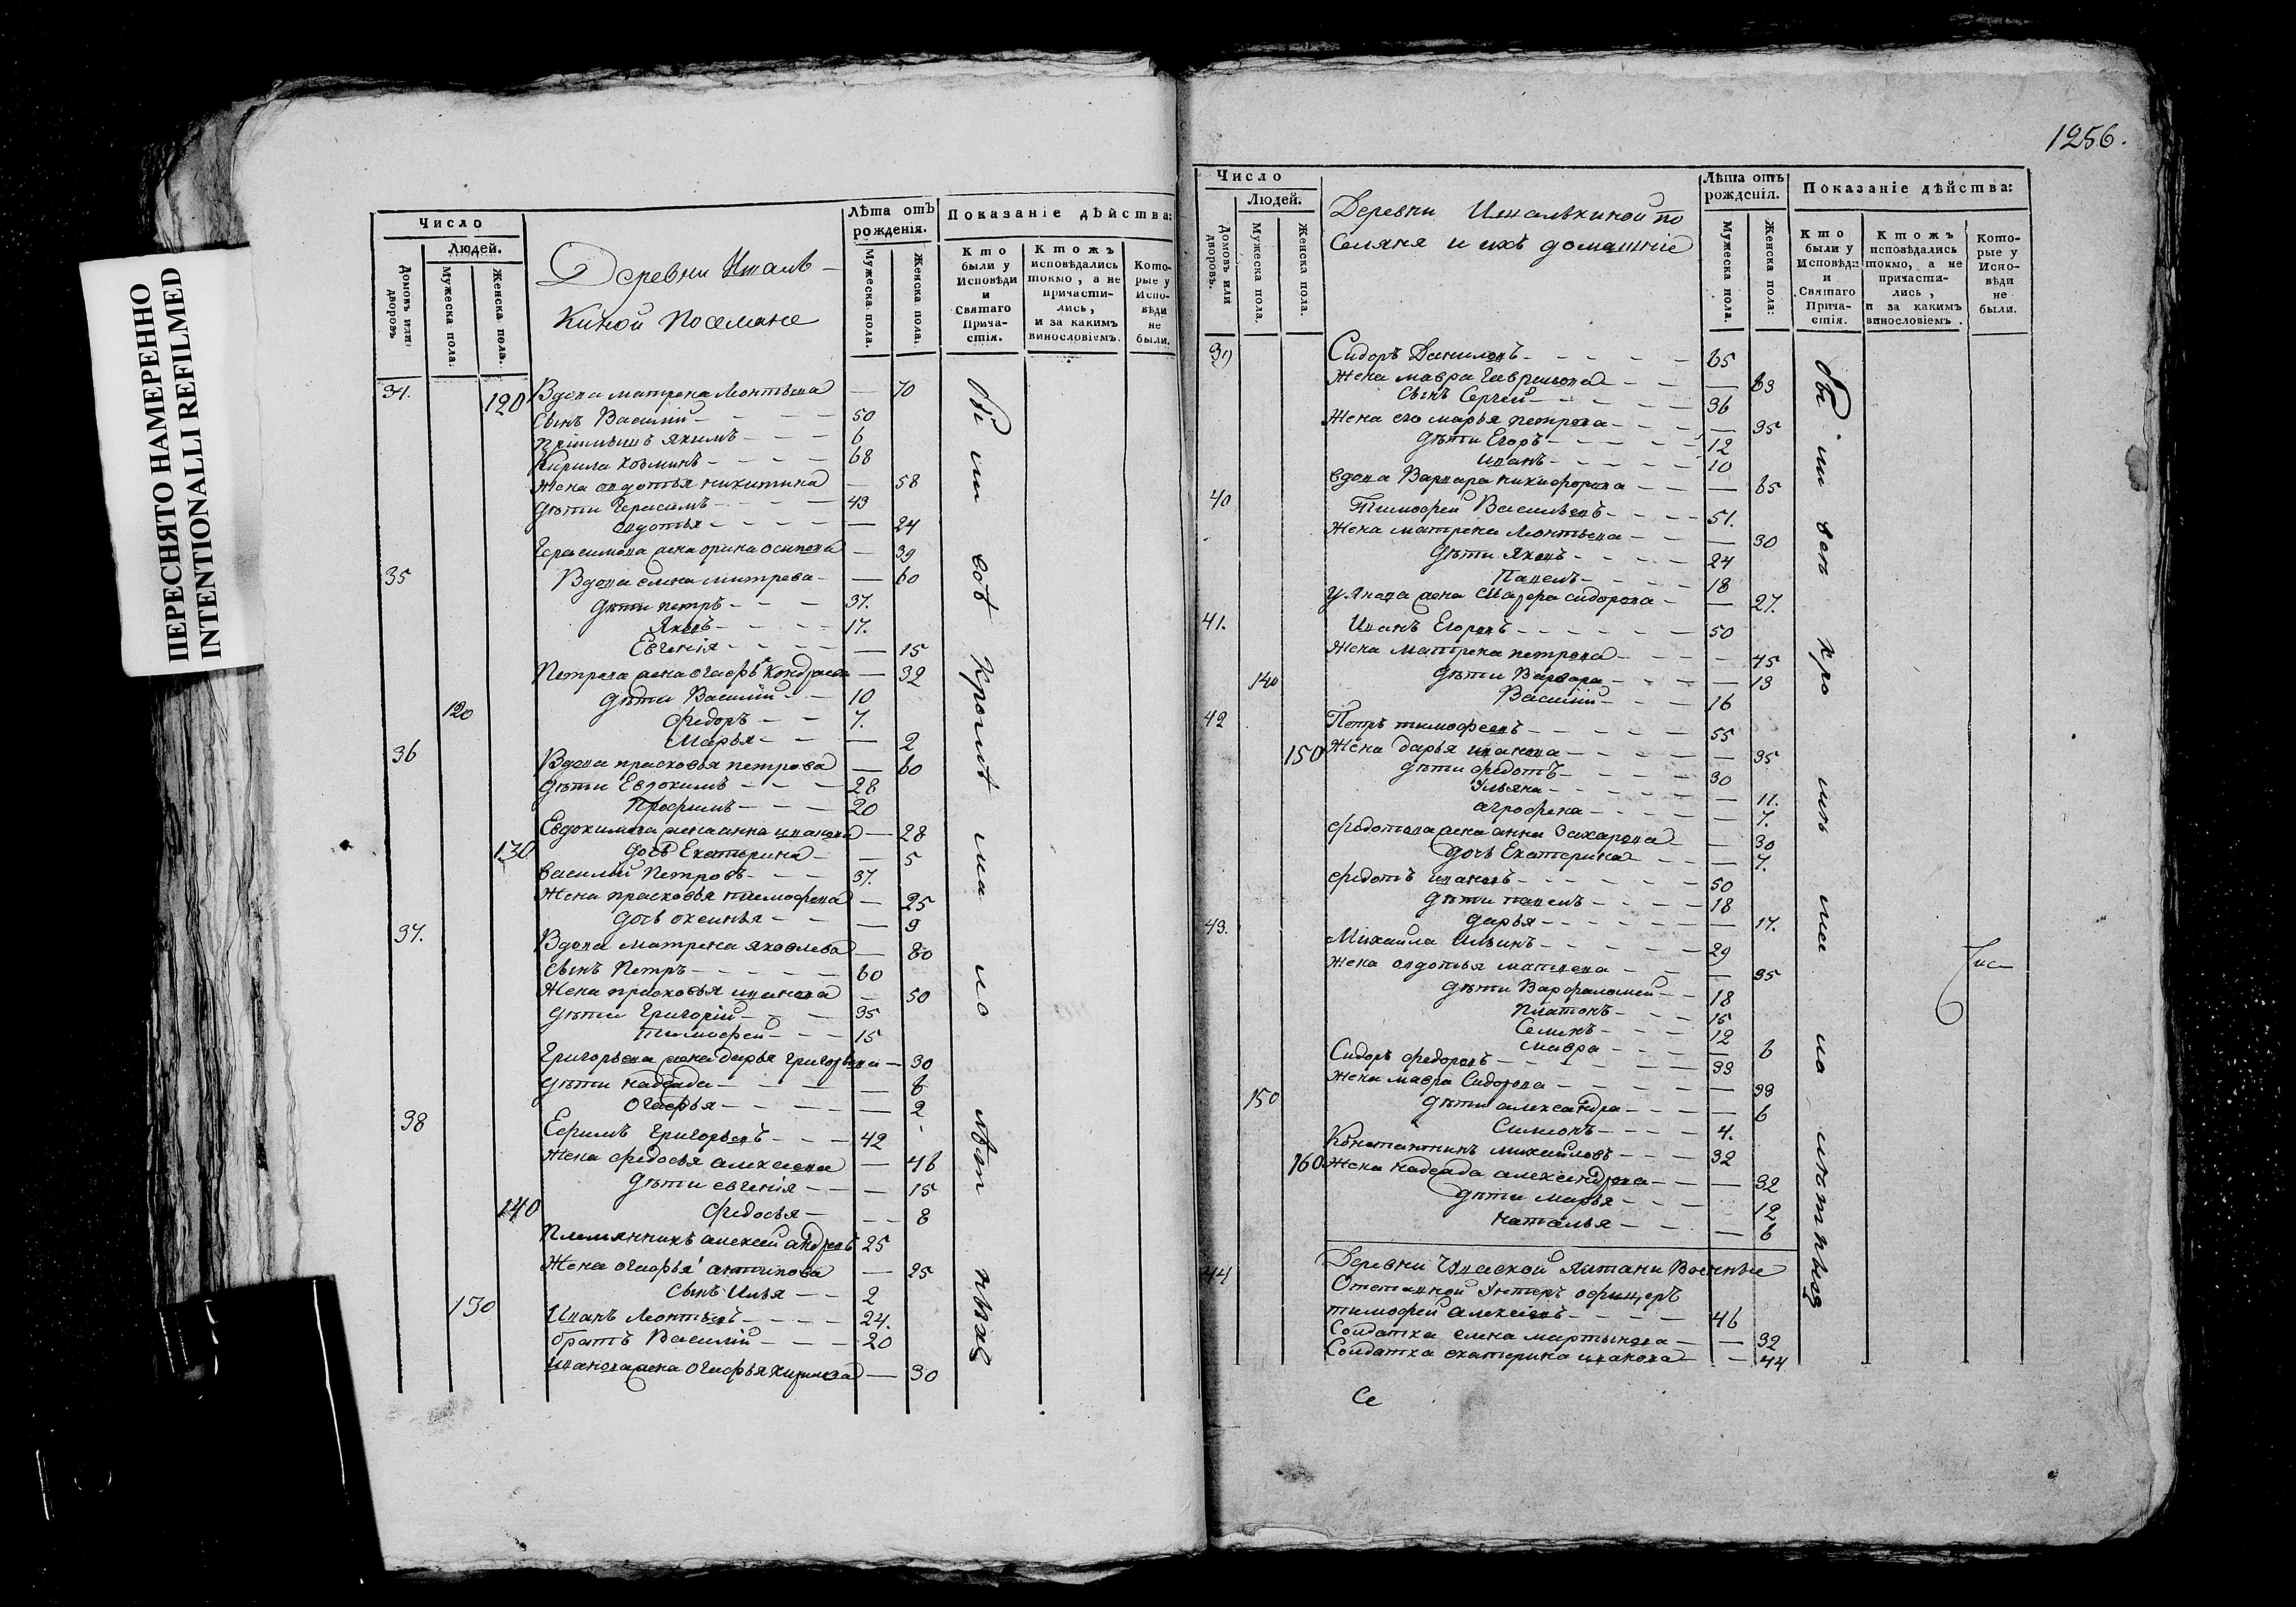 ПЕРЕСНЯТО НАМЕРЕННО
INTENTIONALLI REFILMED
Число
Людей.
Домовъ или дворовъ
Мужеска пола.
Женска пола.
Деревни
киной поселяне
Лѣта отъ рожденія.
Мужеска пола.
Женска пола.
Показаніе дѣйства:
Кто были у Исповѣди и Святаго Прича-стія.
Ктожъ исповѣдались токмо, а не причасти-лись, и за какимъ винословіемъ.
Кото-рые у Испо-вѣди не были.
34. 120 Вдова матрена Леонтьева — 70
Сынъ Василій 50
Якимъ 6
Кирила козминъ 68
Жена авдотья никитина — 58
дѣти Герасимъ 43
авдотья — 24
Герасимова жена орина осипова — 39
35 Вдова елена митрева — 60
дѣти петръ 37.
Яковъ 17.
Евгенія — 15
Петрова жена огафья Кондратьева — 32
дѣти Василій 10
120 Федоръ 7.
Марья — 2
36 Вдова прасковья петрова — 60
дѣти Евдокимъ 28
Трофимъ 20
Евдокимова жена анна иванова — 28
130 дочь Екатерина — 5
Василий Петровъ 37.
Жена прасковья тимофеева — 25
дочь оксинья — 9
37. Вдова Матрена яковлева — 80
Сынъ Петръ 60
Жена прасковья иванова — 50
дѣти Григорій 35
тимофей 15
Григорьева жена дарья Григорьева — 30
дѣти надежда — 6
Огафья — 2
38 Ефимъ Григорьевъ 42
Жена федосья алексеева — 46
дѣти евгенія — 15
140 Федосья — 8
Племянникъ алексей андреевъ 25
Жена огафья антипова — 25
сынъ Илья 2
130 Иванъ Леонтьевъ 24.
братъ Василій 20
Иванова жена Огафья кирилова — 30
бы ли всѣ кромѣ ма ло лѣт ныхъ
1256.
Число
Людей.
Домовъ или дворовъ.
Мужеска пола.
Женска пола.
Деревни по
селяня и ихъ домашніе
Лѣта отъ рожденія.
Мужеска пола.
Женска пола:
Показаніе дѣйства:
Кто были у Исповѣди и Святаго Прича-стія.
Ктожъ исповѣдались токмо, а не причасти-лись, и за какимъ винословіемъ.
Кото-рые у Испо-вѣди не были.
39 Сидоръ Даниловъ 65
Жена мавра гаврилова — 63
Сынъ Сергей 36
Жена его марья петрова — 35
дѣти Егоръ 12
Иванъ 10
вдова Варвара никифорова — 65
40 Тимофей Васильевъ 51.
Жена матрена Леонтьева — 30
дѣти Яковъ 24
Павелъ 18
у Якова жена сидорова — 27.
41. Иванъ Егоровъ 50
Жена Матрена петрова — 45
140 дѣти Варвара — 13
Василий 16
42 Петръ тимофеевъ 55
150 Жена дарья иванова — 35
дѣти федотъ 30
Ульяна — 11.
агрофена — 7.
федотова жена анна Захарова — 30
дочь Екатерина — 7.
федотъ ивановъ 50
дѣти павелъ 18
дарья — 17.
43. Михайла Ильинъ 29
Жена авдотья матвеева — 35
дѣти Варфаломей 18
платонъ 15
Семенъ 12
мавра — 6
Сидоръ федоровъ 39
Жена мавра Сидорова — 39
150 дѣти александра — 6
Симеонъ 4.
Констаптинъ михайловъ 32
160 Жена надежда александрова — 32
дѣти марья — 12
наталья — 6
Деревни Военные
44 Отставной Унтеръ офицеръ
тимофей алексеевъ 46
Солдатка елена мартынова — 32
Солдатка екатерина иванова — 44
бы ли всѣ кро мѣ ма ло лѣтныхъ
Се